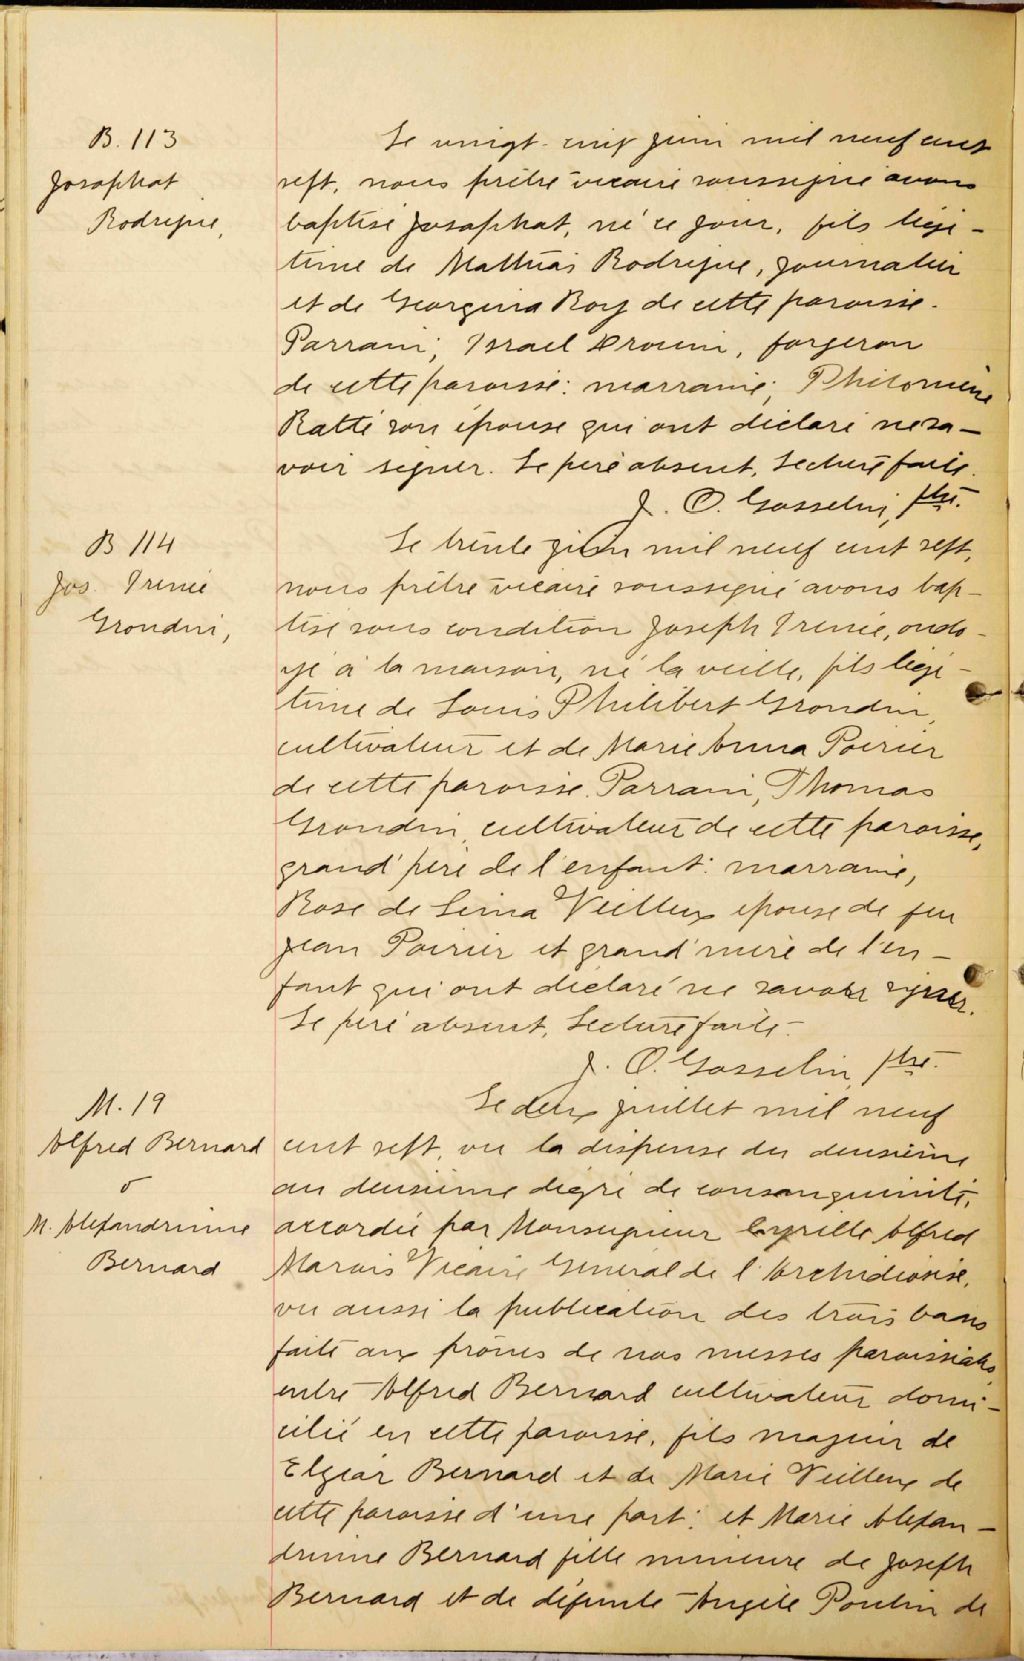 B. 113
Josaphat
Rodrigue,
Le vingt-six juin mil neuf cent
sept, nous prêtre vicaire soussigné avons
baptisé Josaphat, né ce jour, fils légi-
time de Mathias Rodrigue, journalier
et de Georgina Roy de cette paroisse.
Parrain, Israel Drouin, forgeron
de cette paroisse: marraine, Philomène
Ratté son épouse qui ont déclaré ne sa-
voir signer. Le père absent. Lecture faite.
J. O. Gosselin, ptre.
B 114
Jos. Irenée
Grondin,
Le trente juin mil neuf cent sept,
nous prêtre vicaire soussigné avons bap-
tisé sous condition Joseph Irenée, ondo-
yé à la maison, né la veille, fils légi-
time de Louis Philibert Grondin,
cultivateur et de Marie Anna Poirier
de cette paroisse. Parrain, Thomas
Grondin, cultivateur de cette paroisse,
grand'père de l'enfant: marraine,
Rose de Lima Veilleux épouse de feu
Jean Poirier et grand'mère de l'en-
fant qui ont déclaré ne savoir signer.
Le père absent. Lecture faite.
J. O. Gosselin, ptre.
M. 19
Alfred Bernard
&
M. Alexandrinne
Bernard
Le deux juillet mil neuf
cent sept, vu la dispense du deuxième
au deuxième degré de consanguinité,
accordée par Monseigneur Cyrille Alfred
Marois Vicaire Général de l'Archidiocèse,
vu aussi la publication des trois bans
faite aux prônes de nos messes paroissiales,
entre Alfred Bernard cultivateur domi-
cilié en cette paroisse, fils majeur de
Elzéar Bernard et de Marie Veilleux de
cette paroisse d'une part: et Marie Alexan-
drinne Bernard fille mineure de Joseph
Bernard et de défunte Angèle Poulin de